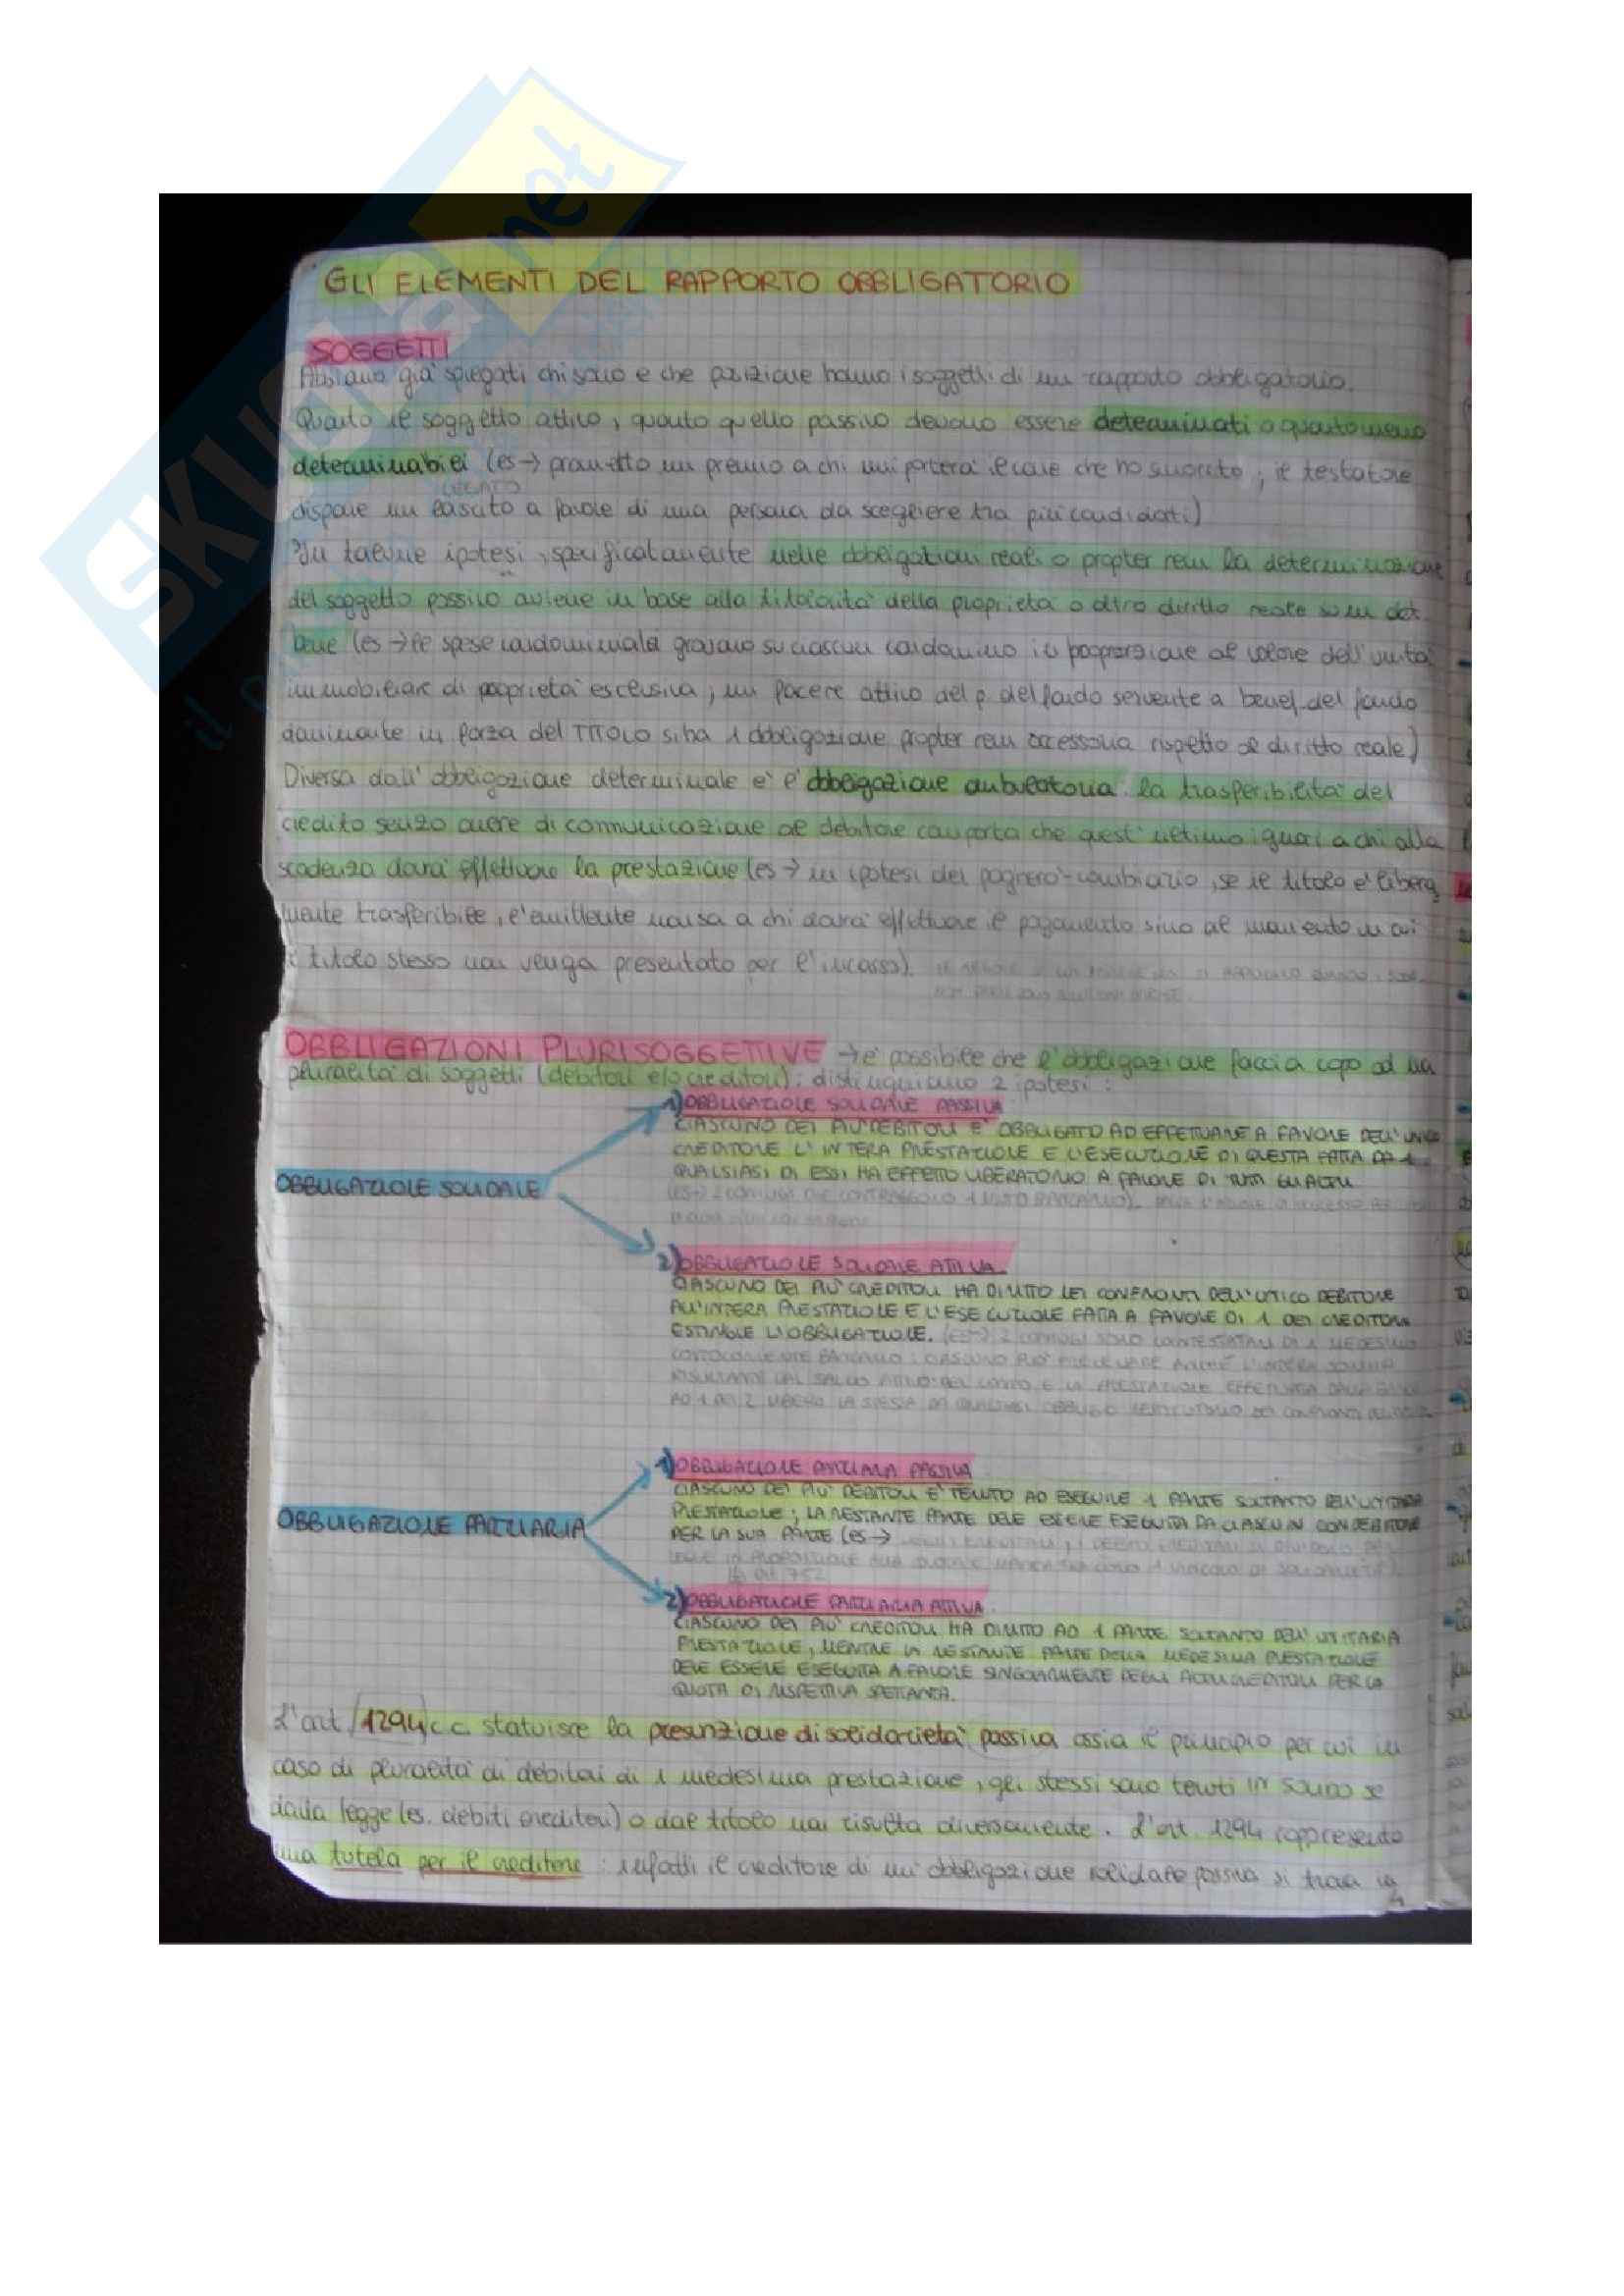 SKUOLA.net
GLI ELEMENTI DEL RAPPORTO OBBLIGATORIO
SOGGETTI
Abbiamo già spiegati chi sono e che posizione hanno i soggetti di un rapporto obbligatorio.
Quanto il soggetto attivo, quanto quello passivo devono essere determinati o quantomeno
determinabili (es → prometto un premio a chi mi porterà il cane che ho smarrito; il testatore
LEGATO
dispone un lascito a favore di una persona da scegliere tra più candidati)
In talune ipotesi, specificatamente nelle obbligazioni reali o propter rem la determinazione
del soggetto passivo avviene in base alla titolarità della proprietà o altro diritto reale su un det.
bene (es → le spese condominiali gravano su ciascun condomino in proporzione al valore dell'unità
immobiliare di proprietà esclusiva; un facere attivo del p. del fondo servente a benef. del fondo
dominante in forza del TITOLO si ha 1 obbligazione propter rem accessoria rispetto al diritto reale)
Diversa dall'obbligazione determinale è l'obbligazione ambulatoria: la trasferibilità del
credito senza onere di comunicazione al debitore comporta che quest'ultimo ignori a chi alla
scadenza dovrà effettuare la prestazione (es → in ipotesi del pagherò-cambiario, se il titolo è libera
mente trasferibile, l'emittente non sa a chi dovrà effettuare il pagamento sino al momento in cui
il titolo stesso non venga presentato per l'incasso).
OBBLIGAZIONI PLURISOGGETTIVE → è possibile che l'obbligazione faccia capo ad una
pluralità di soggetti (debitori e/o creditori): distinguiamo 2 ipotesi:
1) OBBLIGAZIONE SOLIDALE PASSIVA
CIASCUNO DEI PIU' DEBITORI E' OBBLIGATO AD EFFETTUARE A FAVORE DELL'UNICO
CREDITORE L'INTERA PRESTAZIONE E L'ESECUZIONE DI QUESTA FATTA DA 1
QUALSIASI DI ESSI HA EFFETTO LIBERATORIO A FAVORE DI TUTTI GLI ALTRI
OBBLIGAZIONE SOLIDALE
(ES → 2 CONIUGI CHE CONTRAGGONO 1 MUTUO BANCARIO).
2) OBBLIGAZIONE SOLIDALE ATTIVA
CIASCUNO DEI PIU' CREDITORI HA DIRITTO NEI CONFRONTI DELL'UNICO DEBITORE
ALL'INTERA PRESTAZIONE E L'ESECUZIONE FATTA A FAVORE DI 1 DEI CREDITORI
ESTINGUE L'OBBLIGAZIONE. (ES → 2 CONIUGI SONO CONTESTATARI DI 1 MEDESIMO
CONTO CORRENTE BANCARIO: CIASCUNO PUO' PRELEVARE ANCHE L'INTERA SOMMA
RISULTANTE DAL SALDO ATTIVO DEL CONTO E LA PRESTAZIONE EFFETTUATA DALLA BANCA
AD 1 DEI 2 LIBERA LA STESSA DA QUALSIASI OBBLIGO RESTITUTORIO NEI CONFRONTI
1) OBBLIGAZIONE PARZIARIA PASSIVA
CIASCUNO DEI PIU' DEBITORI E' TENUTO AD ESEGUIRE 1 PARTE SOLTANTO DELL'UNITARIA
PRESTAZIONE; LA RESTANTE PARTE DEVE ESSERE ESEGUITA DA CIASCUN CONDEBITORE
OBBLIGAZIONE PARZIARIA
PER LA SUA PARTE (es →
2) OBBLIGAZIONE PARZIARIA ATTIVA
CIASCUNO DEI PIU' CREDITORI HA DIRITTO AD 1 PARTE SOLTANTO DELL'UNITARIA
PRESTAZIONE, MENTRE LA RESTANTE PARTE DELLA MEDESIMA PRESTAZIONE
DEVE ESSERE ESEGUITA A FAVORE SINGOLARMENTE DEGLI ALTRI CREDITORI PER LA
QUOTA DI RISPETTIVA SPETTANZA.
L'art 1294 c.c. statuisce la presunzione di solidarietà passiva ossia il principio per cui in
caso di pluralità di debitori di 1 medesima prestazione, gli stessi sono tenuti in solido se
dalla legge (es. debiti ereditari) o dal titolo non risulta diversamente. L'art. 1294 rappresenta
una tutela per il creditore: infatti il creditore di un'obbligazione solidale passiva si trova in